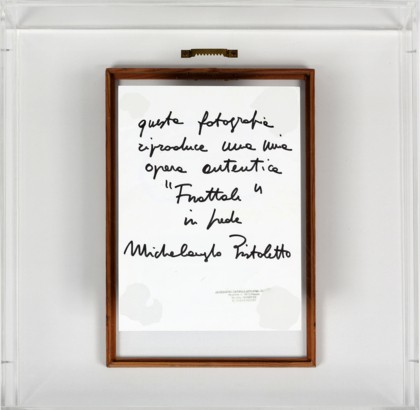 questa fotografia
riproduce una mia
opera autentica
"Frattale"
in fede
Michelangelo Pistoletto